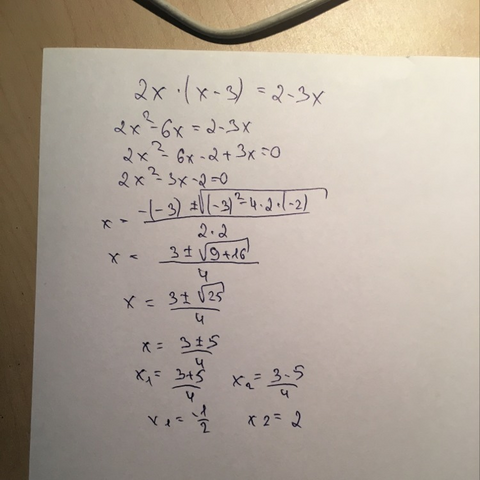 2x · (x - 3) = 2 - 3x
2x² - 6x = 2 - 3x
2x² - 6x - 2 + 3x = 0
2x² - 3x - 2 = 0
x = (-(-3) ± √((-3)² - 4·2·(-2))) / (2·2)
x = (3 ± √(9 + 16)) / 4
x = (3 ± √25) / 4
x = (3 ± 5) / 4
x₁ = (3 + 5) / 4 x₂ = (3 - 5) / 4
x₁ = -1/2 x₂ = 2